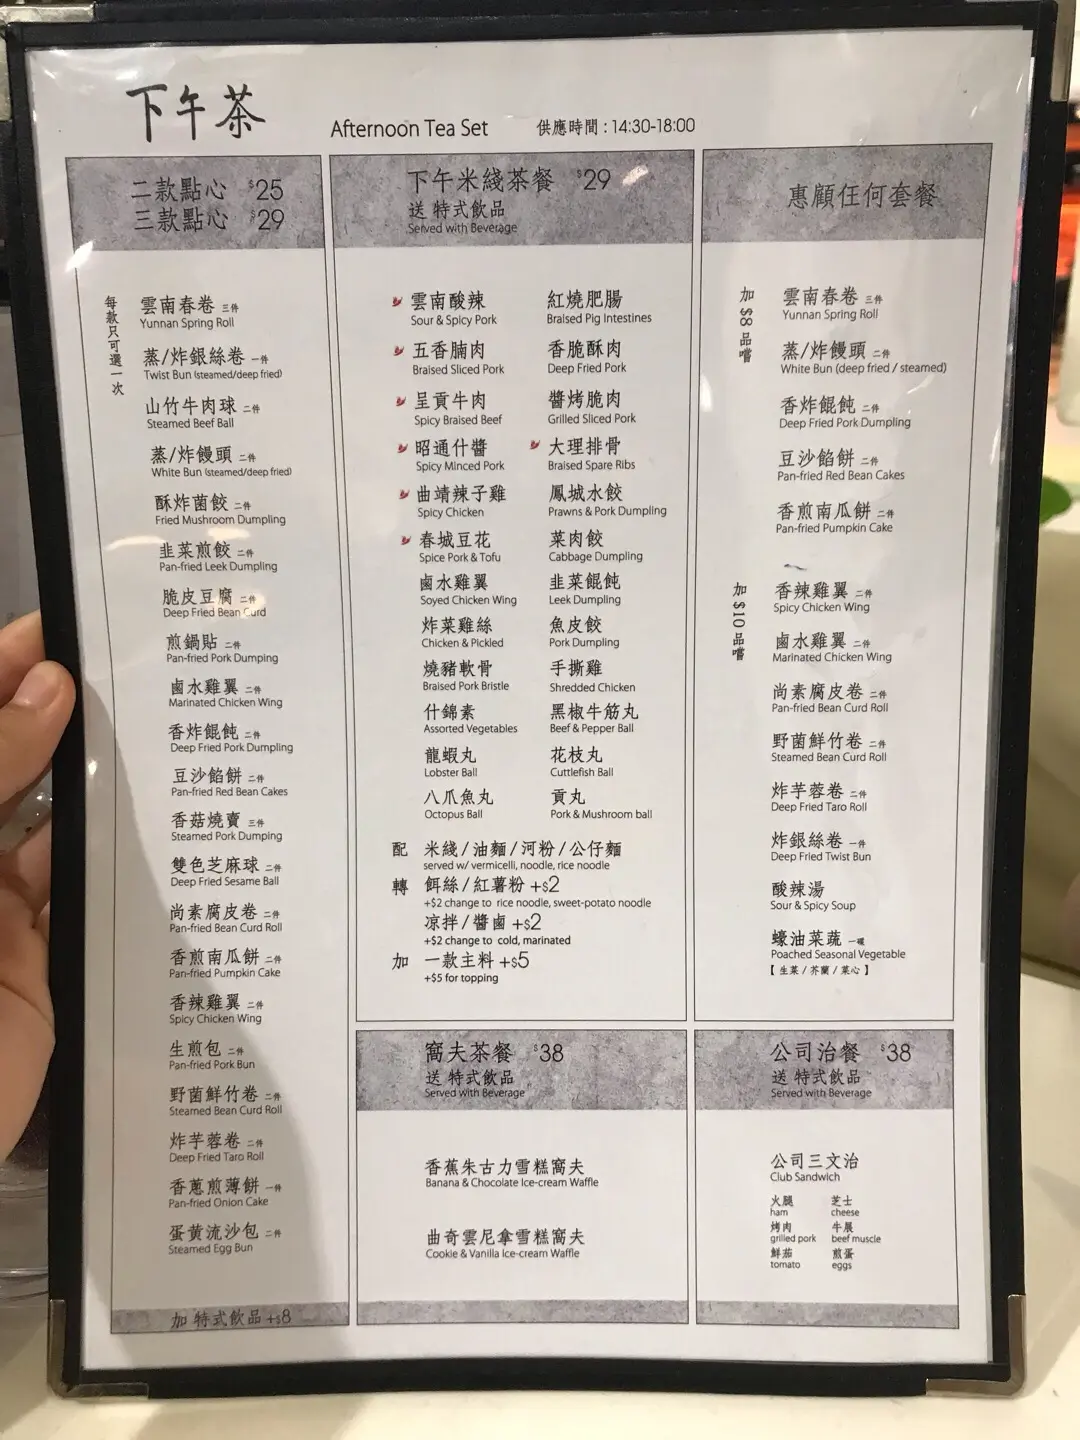 下午茶
Afternoon Tea Set
供應時間 : 14:30-18:00
二款點心 $25
三款點心 $29
每款只可選一次
雲南春卷 三件
Yunnan Spring Roll
蒸/炸銀絲卷 一件
Twist Bun (steamed/deep fried)
山竹牛肉球 二件
Steamed Beef Ball
蒸/炸饅頭 二件
White Bun (steamed/deep fried)
酥炸菌餃 二件
Fried Mushroom Dumpling
韭菜煎餃 二件
Pan-fried Leek Dumpling
脆皮豆腐 二件
Deep Fried Bean Curd
煎鍋貼 二件
Pan-fried Pork Dumping
鹵水雞翼 二件
Marinated Chicken Wing
香炸餛飩 二件
Deep Fried Pork Dumpling
豆沙餡餅 二件
Pan-fried Red Bean Cakes
香菇燒賣 三件
Steamed Pork Dumping
雙色芝麻球 二件
Deep Fried Sesame Ball
尚素腐皮卷 二件
Pan-fried Bean Curd Roll
香煎南瓜餅 二件
Pan-fried Pumpkin Cake
香辣雞翼 二件
Spicy Chicken Wing
生煎包 二件
Pan-fried Pork Bun
野菌鮮竹卷 二件
Steamed Bean Curd Roll
炸芋蓉卷 二件
Deep Fried Taro Roll
香蔥煎薄餅 一件
Pan-fried Onion Cake
蛋黄流沙包 二件
Steamed Egg Bun
加 特式飲品 +$8
下午米綫茶餐 $29
送 特式飲品
Served with Beverage
雲南酸辣
Sour & Spicy Pork
紅燒肥腸
Braised Pig Intestines
五香腩肉
Braised Sliced Pork
香脆酥肉
Deep Fried Pork
呈貢牛肉
Spicy Braised Beef
醬烤脆肉
Grilled Sliced Pork
昭通什醬
Spicy Minced Pork
大理排骨
Braised Spare Ribs
曲靖辣子雞
Spicy Chicken
鳳城水餃
Prawns & Pork Dumpling
春城豆花
Spice Pork & Tofu
菜肉餃
Cabbage Dumpling
鹵水雞翼
Soyed Chicken Wing
韭菜餛飩
Leek Dumpling
炸菜雞絲
Chicken & Pickled
魚皮餃
Pork Dumpling
燒豬軟骨
Braised Pork Bristle
手撕雞
Shredded Chicken
什錦素
Assorted Vegetables
黑椒牛筋丸
Beef & Pepper Ball
龍蝦丸
Lobster Ball
花枝丸
Cuttlefish Ball
八爪魚丸
Octopus Ball
貢丸
Pork & Mushroom ball
配 米綫/油麵/河粉/公仔麵
served w/ vermicelli, noodle, rice noodle
轉 餌絲/紅薯粉 +$2
+$2 change to rice noodle, sweet-potato noodle
凉拌/醬鹵 +$2
+$2 change to cold, marinated
加 一款主料 +$5
+$5 for topping
窩夫茶餐 $38
送 特式飲品
Served with Beverage
香蕉朱古力雪糕窩夫
Banana & Chocolate Ice-cream Waffle
曲奇雲尼拿雪糕窩夫
Cookie & Vanilla Ice-cream Waffle
惠顧任何套餐
加 $8 品嚐
雲南春卷 三件
Yunnan Spring Roll
蒸/炸饅頭 二件
White Bun (deep fried / steamed)
香炸餛飩 二件
Deep Fried Pork Dumpling
豆沙餡餅 二件
Pan-fried Red Bean Cakes
香煎南瓜餅 二件
Pan-fried Pumpkin Cake
加 $10 品嚐
香辣雞翼 二件
Spicy Chicken Wing
鹵水雞翼 二件
Marinated Chicken Wing
尚素腐皮卷 二件
Pan-fried Bean Curd Roll
野菌鮮竹卷 二件
Steamed Bean Curd Roll
炸芋蓉卷 二件
Deep Fried Taro Roll
炸銀絲卷 一件
Deep Fried Twist Bun
酸辣湯
Sour & Spicy Soup
蠔油菜蔬 一碟
Poached Seasonal Vegetable
【 生菜 / 芥蘭 / 菜心 】
公司治餐 $38
送 特式飲品
Served with Beverage
公司三文治
Club Sandwich
火腿 芝士
ham cheese
烤肉 牛展
grilled pork beef muscle
鮮茄 煎蛋
tomato eggs